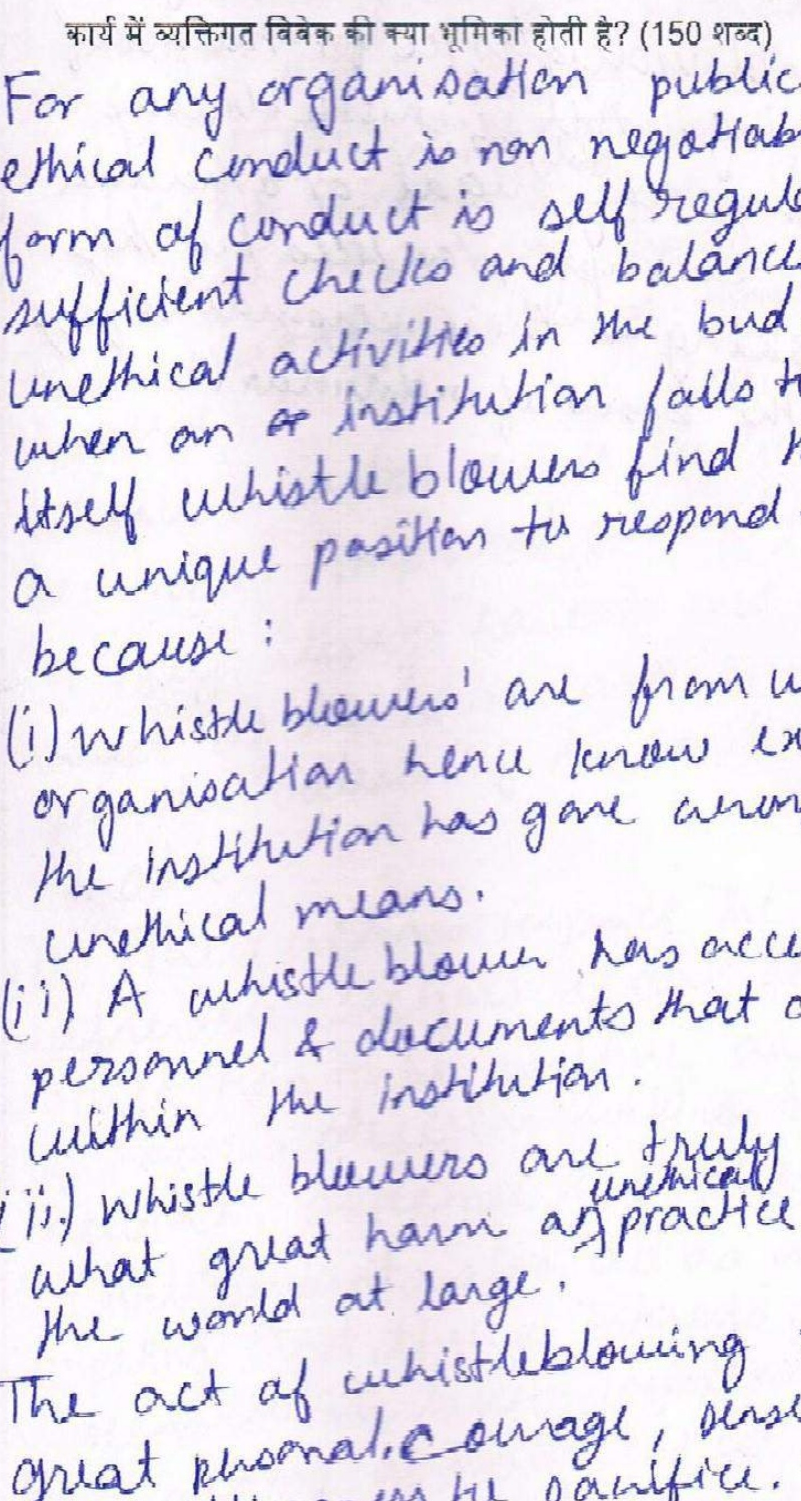 कार्य में व्यक्तिगत विवेक की क्या भूमिका होती है? (150 शब्द)
For any organisation public
ethical conduct is non negotiab
form of conduct is self regul
sufficient checks and balance
unethical activities in the bud
when an institution fails t
itself whistle blowers find
a unique position to respond
because :
(i) whistle blowers' are from w
organisation hence know ex
the institution has gone wron
unethical means.
(ii) A whistle blower has acce
personnel & documents that
within the institution.
iii.) whistle blowers are truly
what great harm an unethical practice
the world at large.
The act of whistleblowing
great personal courage, sense
sacrifice.